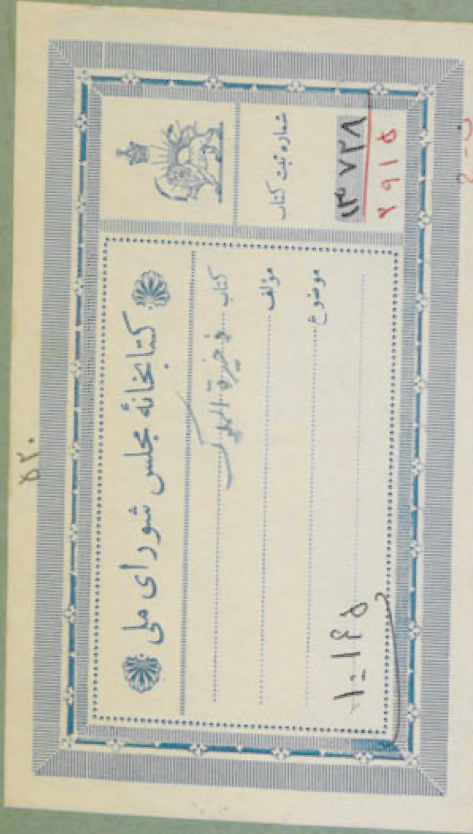 کتابخانهٔ مجلس شورای ملی
کتاب ذخیرة الملوک
مؤلف
موضوع
شماره ثبت کتاب
۱۳۷۲۸
۵۲۰